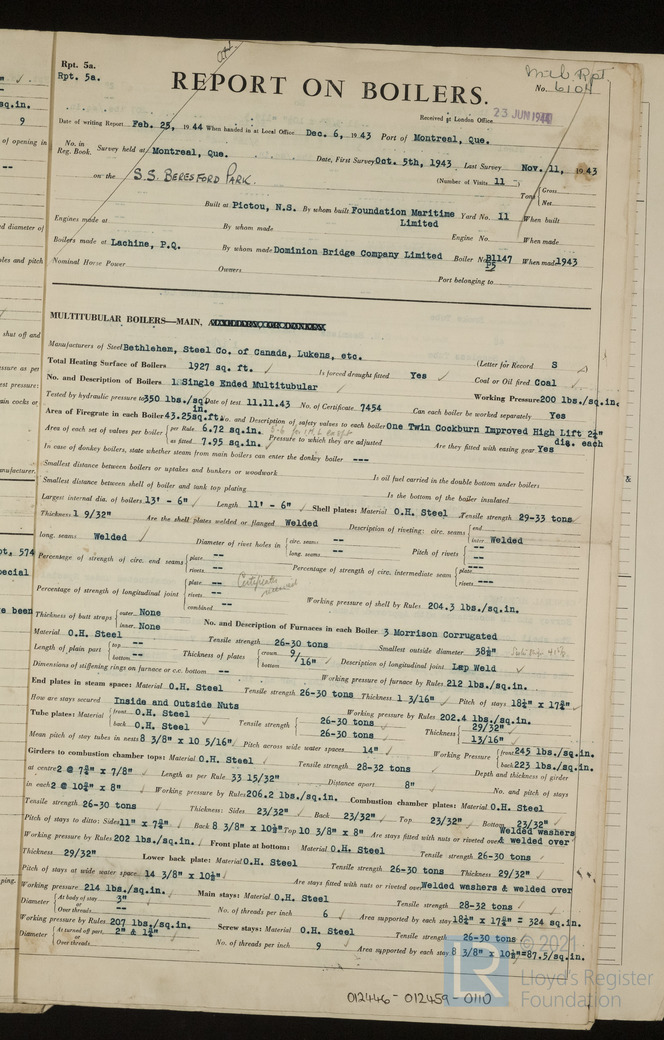 Rpt. 5a.
Rpt. 5a.
REPORT ON BOILERS.
No. 6104
Received at London Office 23 JUN 1944
Date of writing Report Feb. 25, 1944 When handed in at Local Office Dec. 6, 1943 Port of Montreal, Que.
No. in Reg. Book. Survey held at Montreal, Que. Date, First Survey Oct. 5th, 1943 Last Survey Nov. 11, 1943
on the S.S. BERESFORD PARK. (Number of Visits 11 ) Tons Gross Net
Built at Pictou, N.S. By whom built Foundation Maritime Limited Yard No. 11 When built
Engines made at By whom made Engine No. When made
Boilers made at Lachine, P.Q. By whom made Dominion Bridge Company Limited Boiler No. B1147 When made 1943
Nominal Horse Power Owners Port belonging to
MULTITUBULAR BOILERS—MAIN,
Manufacturers of Steel Bethlehem, Steel Co. of Canada, Lukens, etc. (Letter for Record S
Total Heating Surface of Boilers 1927 sq. ft. Is forced draught fitted Yes Coal or Oil fired Coal
No. and Description of Boilers 1 Single Ended Multitubular Working Pressure 200 lbs./sq.in.
Tested by hydraulic pressure to 350 lbs./sq.in. Date of test 11.11.43 No. of Certificate 7454 Can each boiler be worked separately Yes
Area of Firegrate in each Boiler 43.25sq.ft. No. and Description of safety valves to each boiler One Twin Cockburn Improved High Lift 2¼" dia. each
Area of each set of valves per boiler per Rule 6.72 sq.in. as fitted 7.95 sq.in. Pressure to which they are adjusted Are they fitted with easing gear Yes
In case of donkey boilers, state whether steam from main boilers can enter the donkey boiler ---
Smallest distance between boilers or uptakes and bunkers or woodwork Is oil fuel carried in the double bottom under boilers
Smallest distance between shell of boiler and tank top plating Is the bottom of the boiler insulated
Largest internal dia. of boilers 13' - 6" Length 11' - 6" Shell plates: Material O.H. Steel Tensile strength 29-33 tons
Thickness 1 9/32" Are the shell plates welded or flanged Welded Description of riveting: circ. seams end inter. Welded
long. seams Welded Diameter of rivet holes in circ. seams -- long. seams -- Pitch of rivets -- --
Percentage of strength of circ. end seams plate -- rivets -- Percentage of strength of circ. intermediate seam plate --- rivets ---
Percentage of strength of longitudinal joint plate -- rivets -- combined -- Certificate received Working pressure of shell by Rules 204.3 lbs./sq.in.
Thickness of butt straps outer None inner None No. and Description of Furnaces in each Boiler 3 Morrison Corrugated
Material O.H. Steel Tensile strength 26-30 tons Smallest outside diameter 38½"
Length of plain part top -- bottom -- Thickness of plates crown bottom 9/16" Description of longitudinal joint Lap Weld
Dimensions of stiffening rings on furnace or c.c. bottom -- Working pressure of furnace by Rules 212 lbs./sq.in.
End plates in steam space: Material O.H. Steel Tensile strength 26-30 tons Thickness 1 3/16" Pitch of stays 18¼" x 17¾"
How are stays secured Inside and Outside Nuts Working pressure by Rules 202.4 lbs./sq.in.
Tube plates: Material front O.H. Steel back O.H. Steel Tensile strength 26-30 tons 26-30 tons Thickness 29/32" 13/16"
Mean pitch of stay tubes in nests 8 3/8" x 10 5/16" Pitch across wide water spaces 14" Working Pressure front 245 lbs./sq.in. back 223 lbs./sq.in.
Girders to combustion chamber tops: Material O.H. Steel Tensile strength 28-32 tons Depth and thickness of girder
at centre 2 @ 7¾" x 7/8" Length as per Rule 33 15/32" Distance apart 8" No. and pitch of stays
in each 2 @ 10¾" x 8" Working pressure by Rules 206.2 lbs./sq.in. Combustion chamber plates: Material O.H. Steel
Tensile strength 26-30 tons Thickness: Sides 23/32" Back 23/32" Top 23/32" Bottom 23/32"
Pitch of stays to ditto: Sides 11" x 7¾" Back 8 3/8" x 10½" Top 10 3/8" x 8" Are stays fitted with nuts or riveted over Welded washers & welded over
Working pressure by Rules 202 lbs./sq.in. Front plate at bottom: Material O.H. Steel Tensile strength 26-30 tons
Thickness 29/32" Lower back plate: Material O.H. Steel Tensile strength 26-30 tons Thickness 29/32"
Pitch of stays at wide water space 14 3/8" x 10½" Are stays fitted with nuts or riveted over Welded washers & welded over
Working pressure 214 lbs./sq.in. Main stays: Material O.H. Steel Tensile strength 28-32 tons
Diameter At body of stay 3" or Over threads -- No. of threads per inch 6 Area supported by each stay 18¼" x 17¾" = 324 sq.in.
Working pressure by Rules 207 lbs./sq.in. Screw stays: Material O.H. Steel Tensile strength 26-30 tons
Diameter At turned off part 2" & 1¾" or Over threads No. of threads per inch 9 Area supported by each stay 8 3/8" x 10½"=87.5/sq.in.
012446-012459-0110
© 2021
Lloyd's Register
Foundation